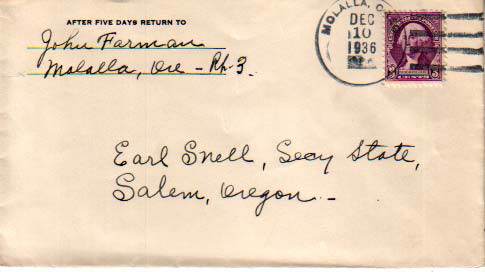 AFTER FIVE DAYS RETURN TO
John Farman
Molalla, Ore - Rt. 3.
MOLALLA, O
DEC
10
1936
Earl Snell, Secy State,
Salem, Oregon.-